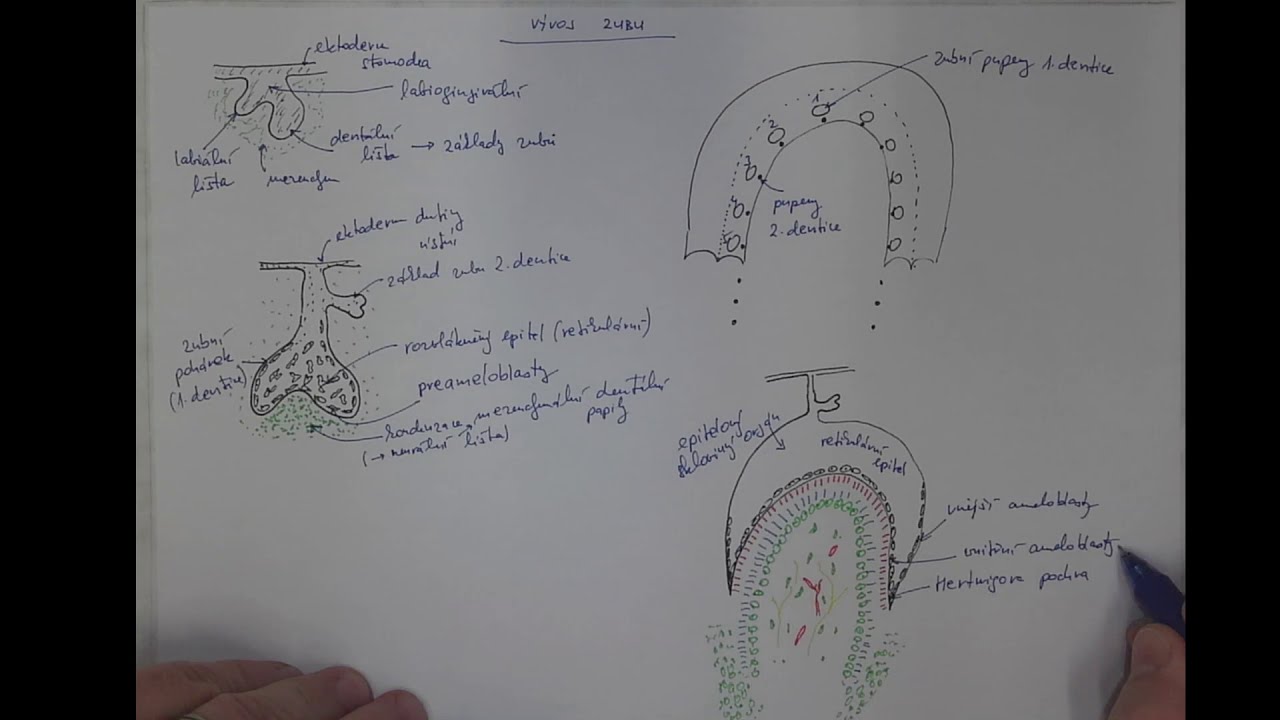 VÝVOJ ZUBU
ektoderm
stomodea
labiogingivální
dentální
lišta → základy zubů
labiální
lišta
mezenchym
ektoderm dutiny
ústní
základ zubu 2. dentice
zubní
pohárek
(1. dentice)
rozvlákněný epitel (retikulární)
preameloblasty
kondenzace mezenchymální dentální
papily
(→ neurální lišta)
zubní pupeny 1. dentice
1
2
3
4
5
pupeny
2. dentice
epitelový
sklovinný orgán
retikulární
epitel
vnější ameloblasty
vnitřní ameloblasty
Hertwigova pochva